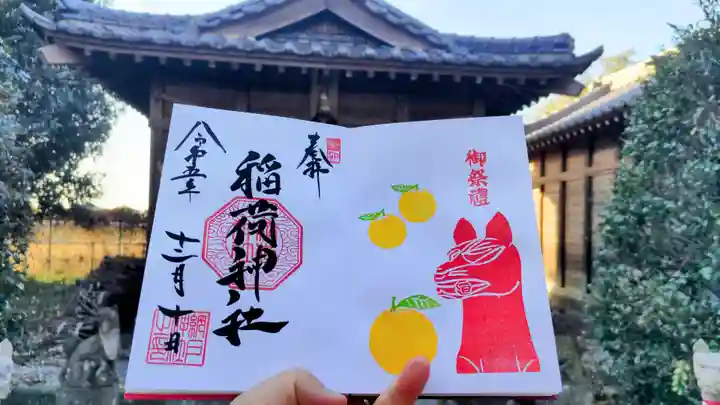 奉拝
稲荷神社
令和五年
十二月十日
御祭禮